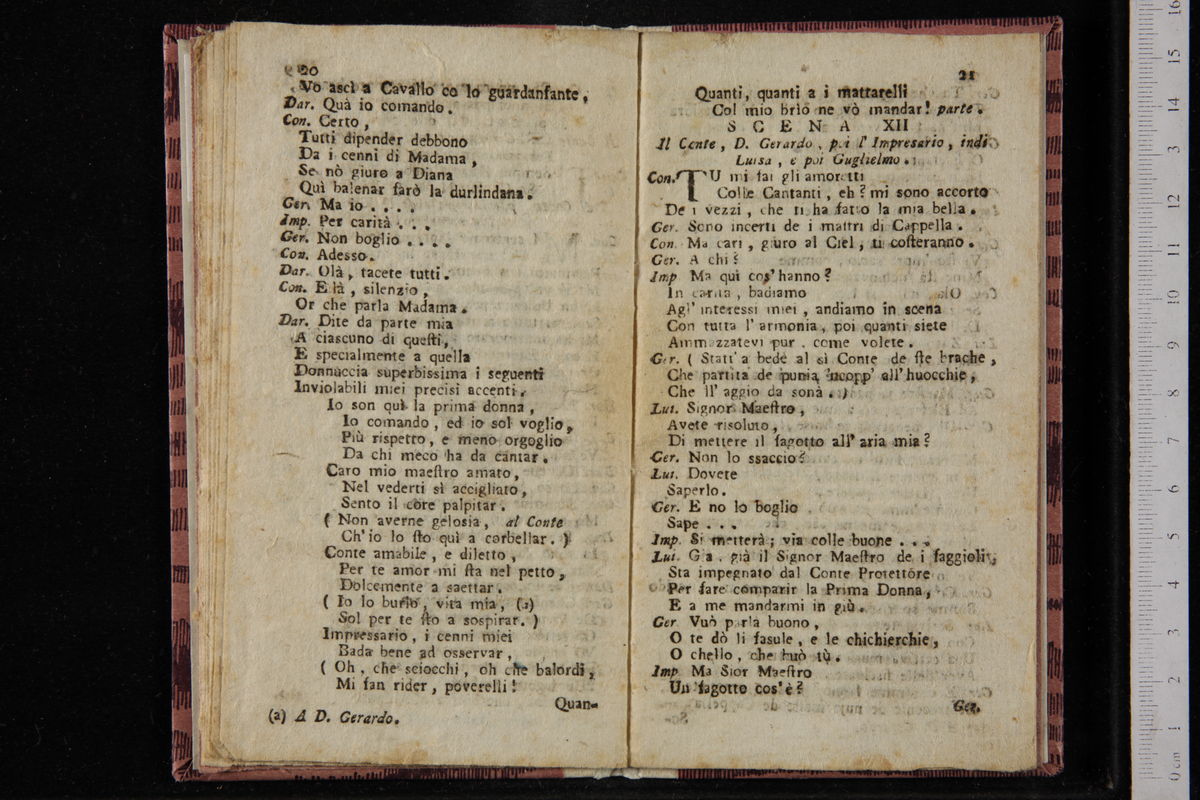 20
Vo ascì a Cavallo co lo guardanfante,
Dar. Quà io comando.
Con. Certo,
Tutti dipender debbono
Da i cenni di Madama,
Se nò giuro a Diana
Quì balenar farò la durlindana.
Ger. Ma io . . . .
Imp. Per carità . . .
Ger. Non boglio . . . .
Con. Adesso.
Dar. Olà, tacete tutti.
Con. Elà, silenzio,
Or che parla Madama.
Dar. Dite da parte mia
A ciascuno di questi,
E specialmente a quella
Donnuccia superbissima i seguenti
Inviolabili miei precisi accenti.
Io son quì la prima donna,
Io comando, ed io sol voglio,
Più rispetto, e meno orgoglio
Da chi meco ha da cantar.
Caro mio maestro amato,
Nel vederti sì accigliato,
Sento il core palpitar.
( Non averne gelosia, al Conte
Ch' io lo sto quì a corbellar. )
Conte amabile, e diletto,
Per te amor mi sta nel petto,
Dolcemente a saettar.
( Io lo burlo, vita mia, (a)
Sol per te sto a sospirar. )
Impressario, i cenni miei
Bada bene ad osservar,
( Oh, che sciocchi, oh che balordi,
Mi fan rider, poverelli!
Quan-
(a) A D. Gerardo.
21
Quanti, quanti a i mattarelli
Col mio briò ne vò mandar! parte.
SCENA XII
Il Conte, D. Gerardo, poi l' Impresario, indi
Luisa, e poi Guglielmo.
Con. TU mi fai gli amoretti
Colle Cantanti, eh? mi sono accorto
De i vezzi, che ti ha fatto la mia bella.
Ger. Sono incerti de i mastri di Cappella.
Con. Ma cari, giuro al Ciel, ti costeranno.
Ger. A chi?
Imp Ma qui cos' hanno?
In carità, badiamo
Agl' interessi miei, andiamo in scena
Con tutta l' armonia, poi quanti siete
Ammazzatevi pur, come volete.
Ger. ( Statt' a bedè al sì Conte de ste brache,
Che partita de punia 'ncopp' all' huocchie,
Che ll' aggio da sonà. )
Lui. Signor Maestro,
Avete risoluto,
Di mettere il fagotto all' aria mia?
Ger. Non lo ssaccio?
Lui. Dovete
Saperlo.
Ger. E no lo boglio
Sape . . .
Imp. Si metterà; via colle buone . . .
Lui. Già, già il Signor Maestro de i faggioli,
Sta impegnato dal Conte Protettore
Per fare comparir la Prima Donna,
E a me mandarmi in giù.
Ger Vuò parlà buono,
O te dò li fasule, e le chichierchie,
O chello, che buò tù.
Imp Ma Sior Maestro
Un fagotto cos' è?
Ger.